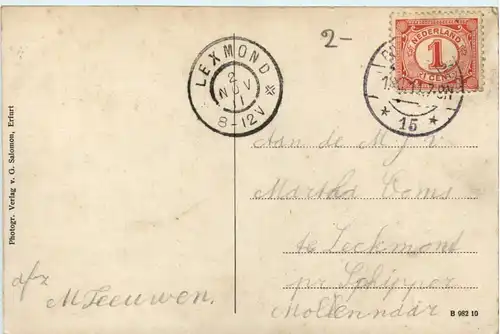 2-
LEXMOND
2
NOV
11
8-12V
NEDERLAND
1
CENT
15
Aan de
Martha
te Leckmond
pr Schipper
Photogr. Verlag v. O. Salomon, Erfurt
afz
M Teeuwen.
B 982 10